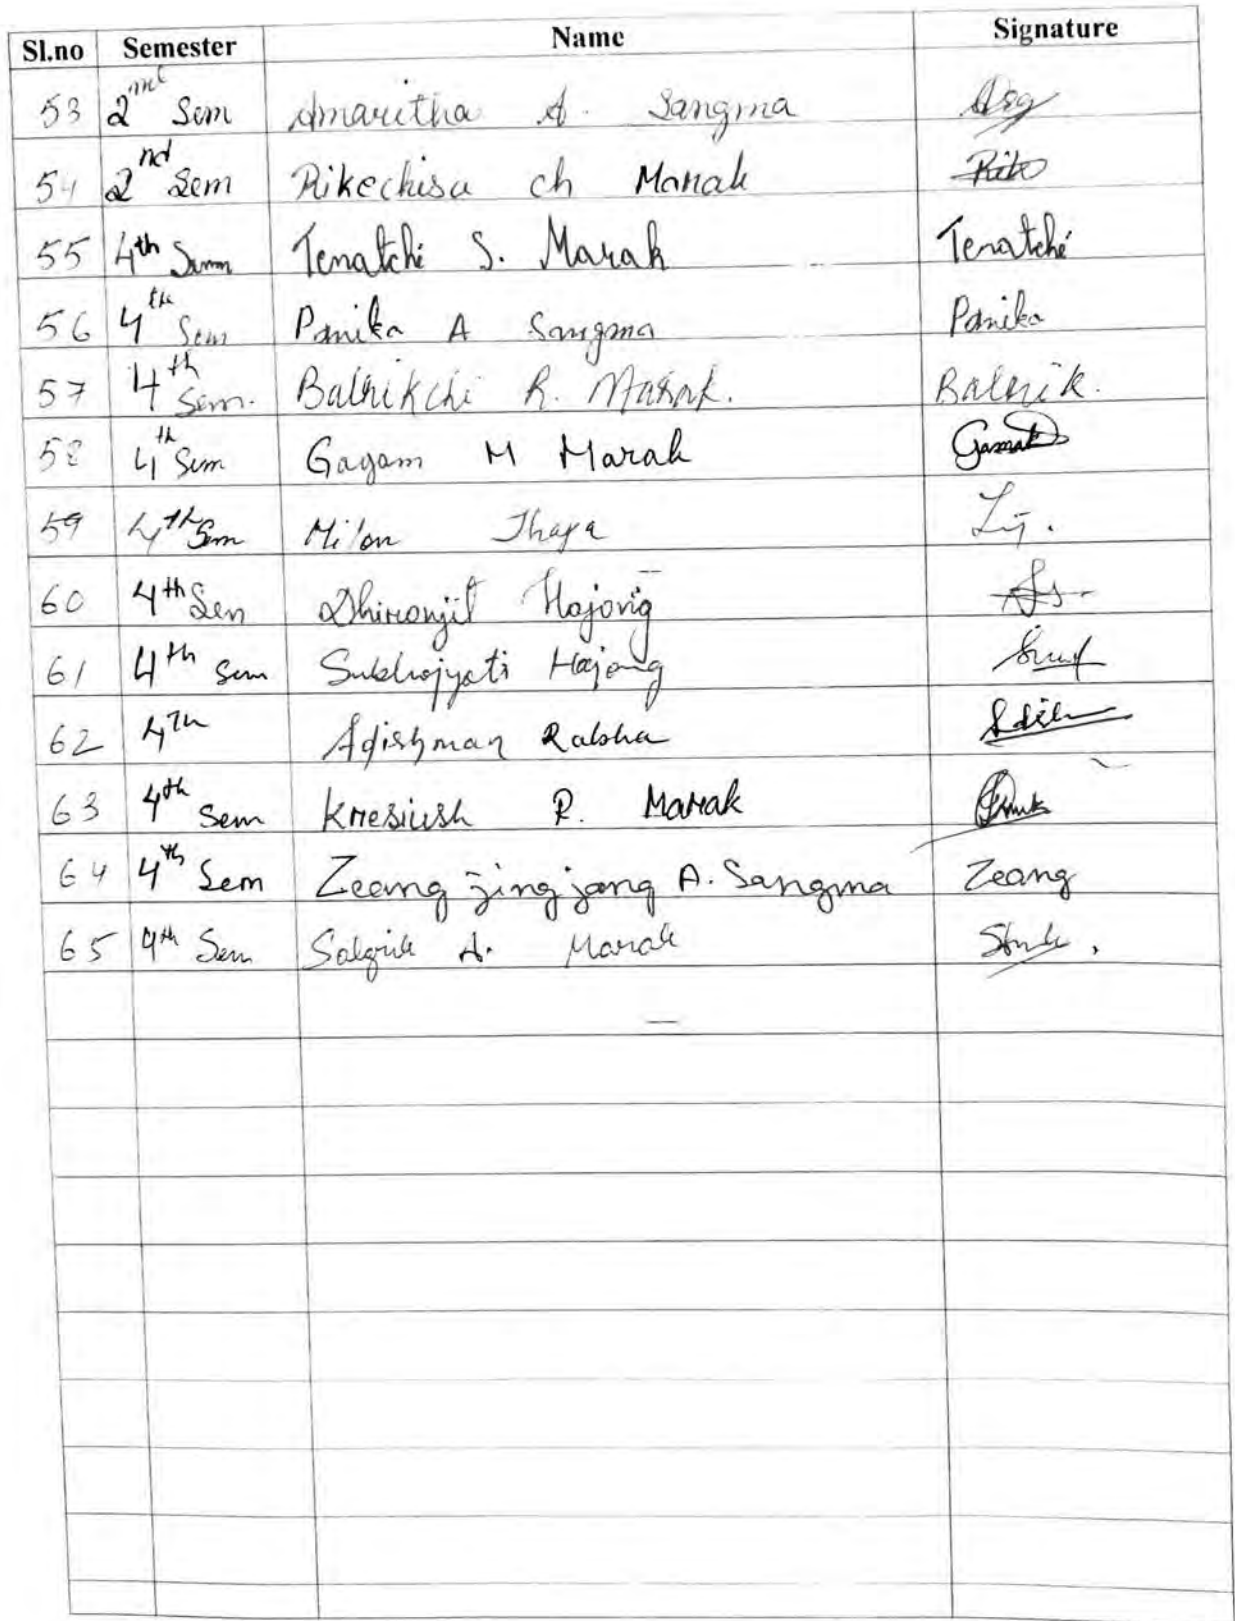 Sl.no Semester Name Signature
53 2nd Sem Amaritha A. Sangma
54 2nd Sem Rikechisa ch Marak Rik
55 4th Semm Tenatchi S. Marak Tenatchi
56 4th Sem Panika A Sangma Panika
57 4th Sem. Balrikchi R. Marak. Balrik.
58 4th Sem Gagam M Marak
59 4th Sem Milon Thapa
60 4th Sem Dhironjit Hajong
61 4th Sem Subhojyoti Hajong
62 4Th Rabha
63 4th Sem Kresiush R. Marak
64 4th Sem Zeeang jing jang A. Sangma Zeang
65 4th Sem Salgrik A. Marak